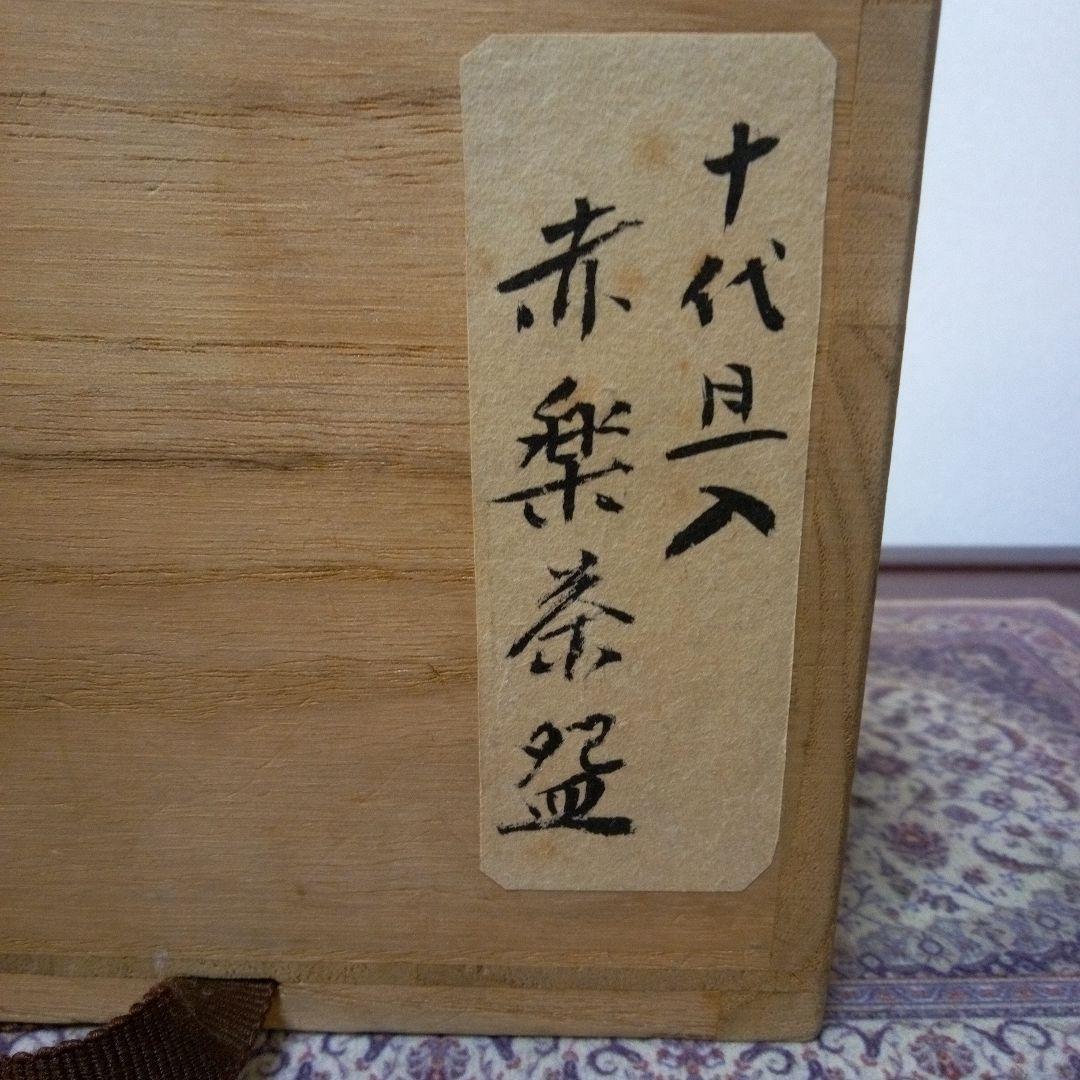 十代旦入
赤楽茶盌